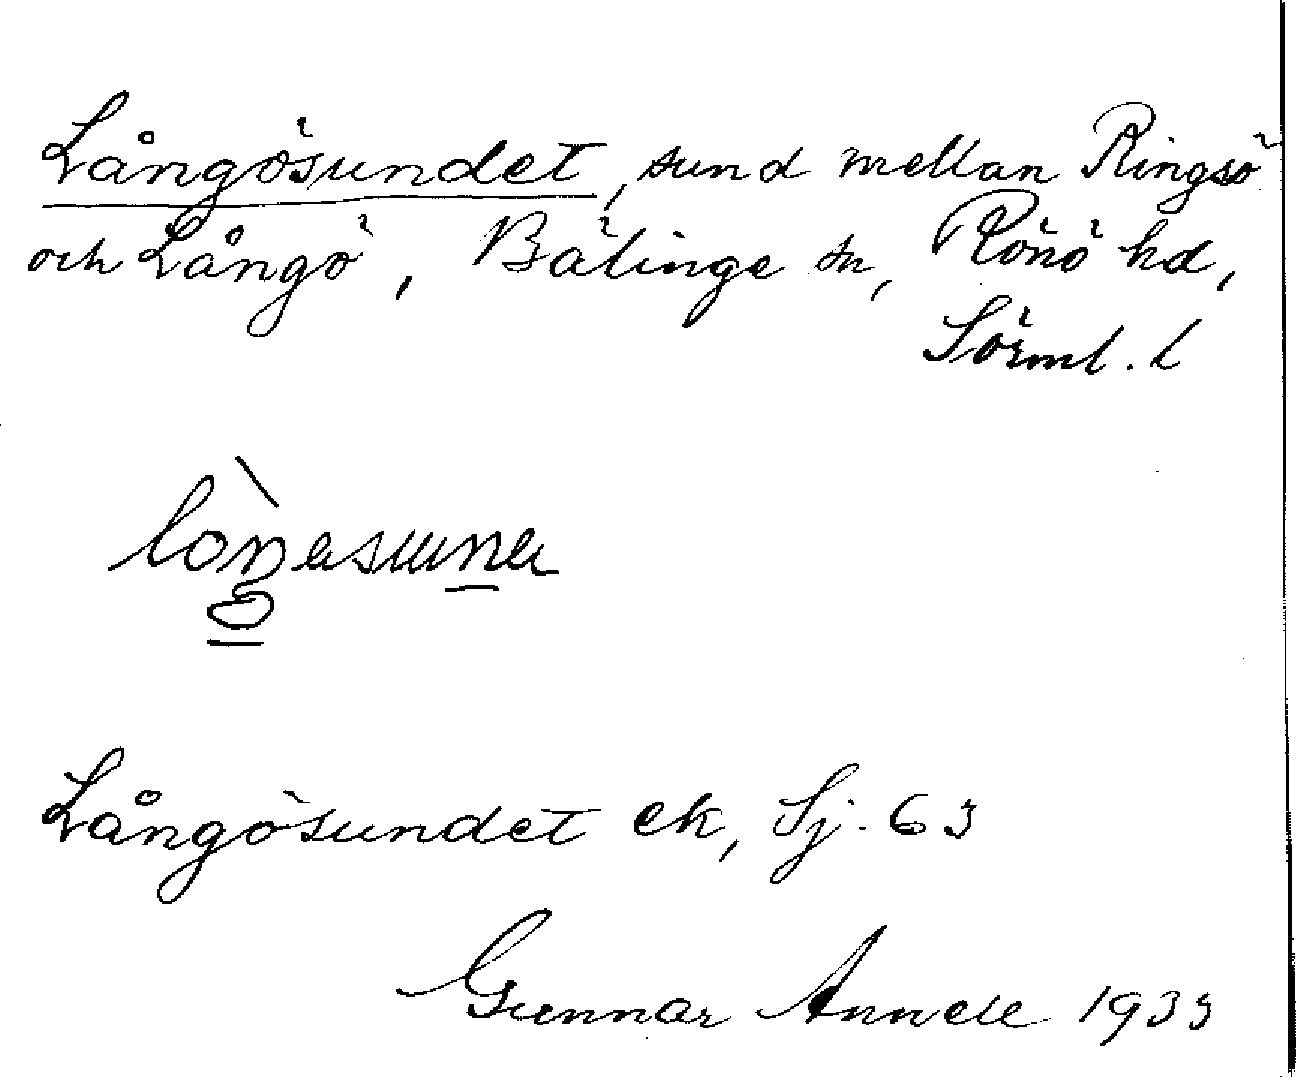 Långösundet, sund mellan Ringsö
och Långö, Bälinge sn, Rönö hd,
Sörml. l
Långösundet ek, Sj. 63
Gunnar Annell 1933